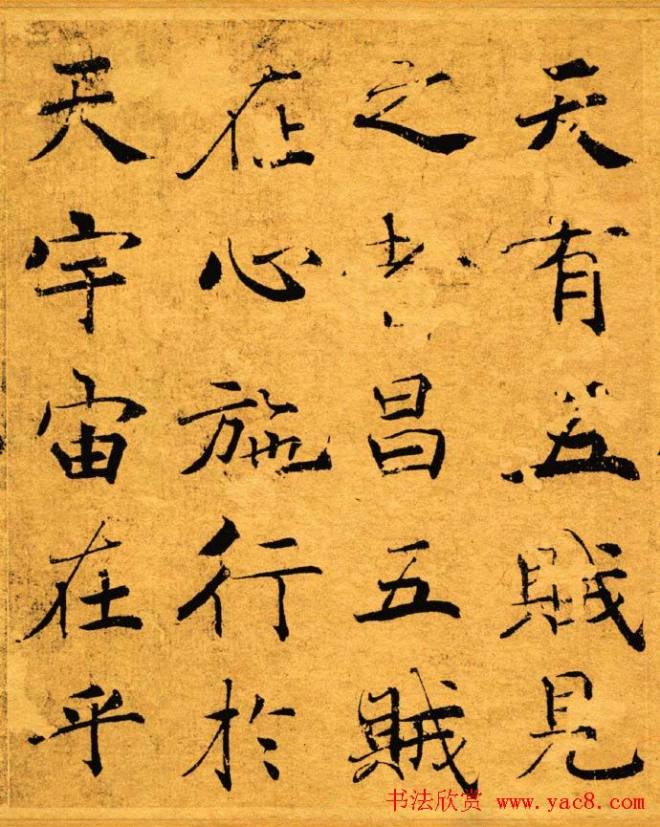 天有五賊見
之者昌五賊
在心施行於
天宇宙在乎
书法欣赏 www.yac8.com